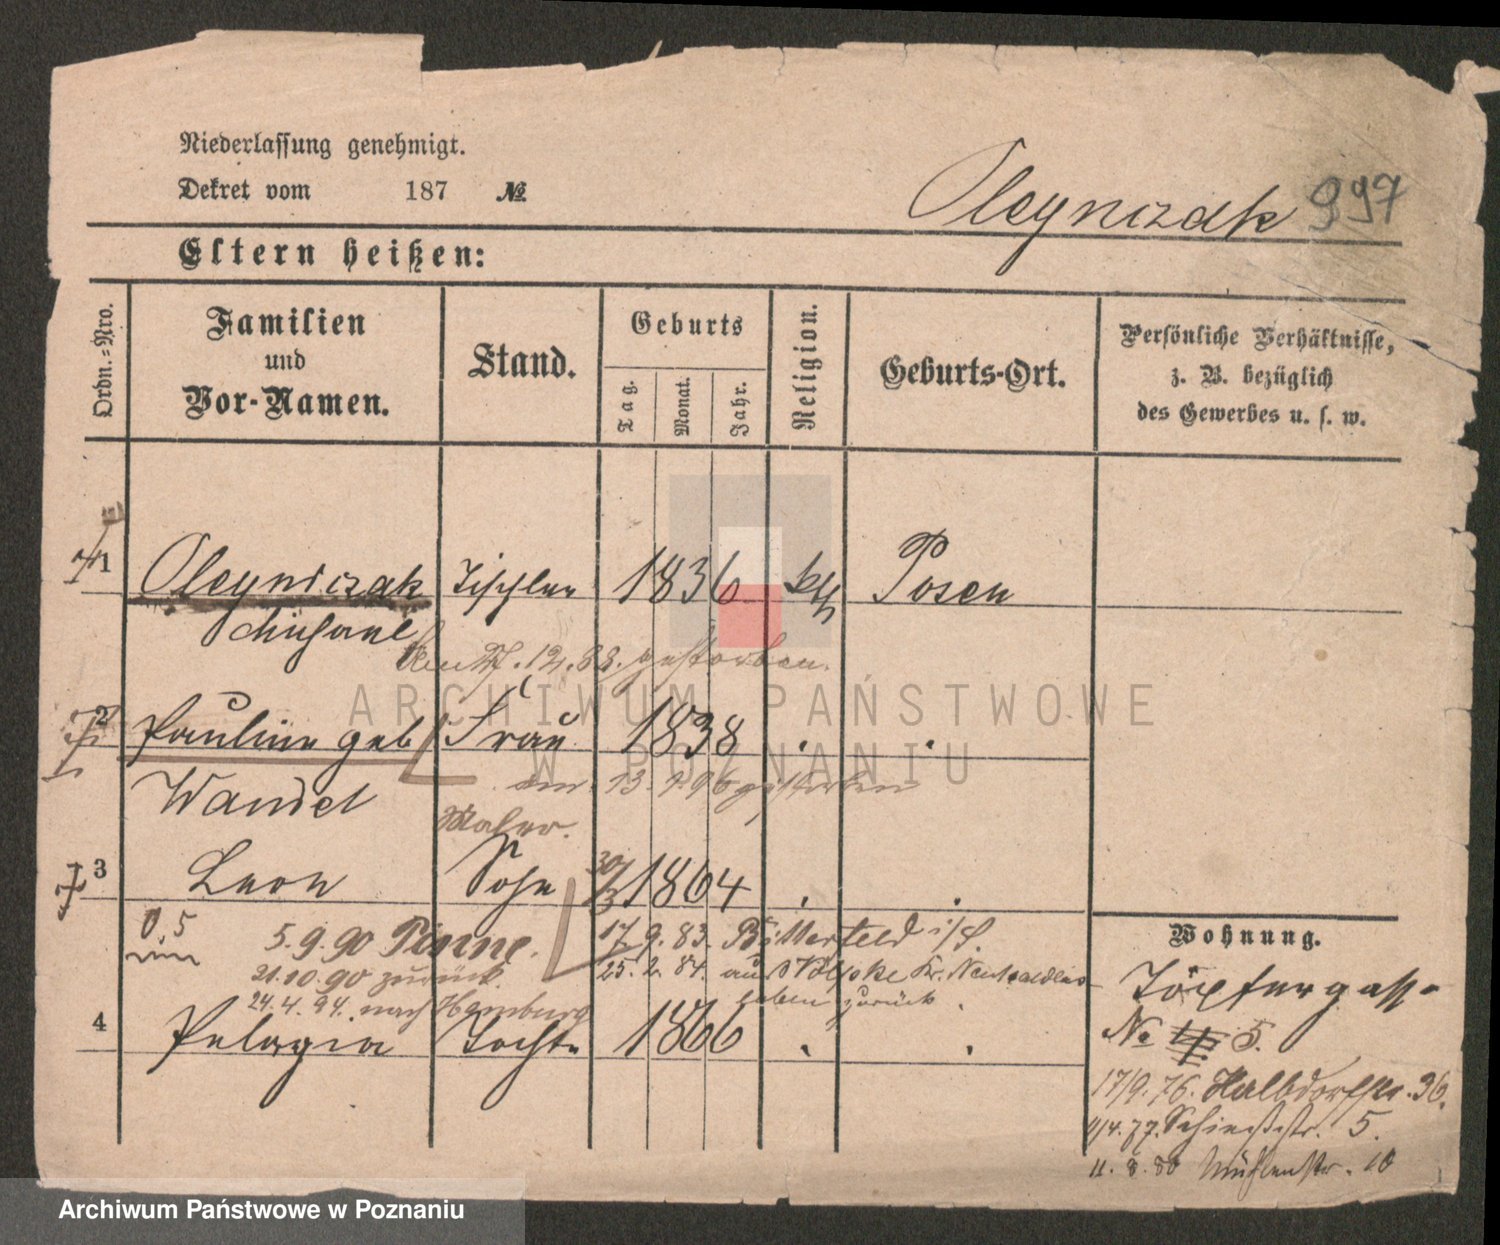 Niederlassung genehmigt.
Dekret vom 187 №
Oleyniczak 997
Eltern heißen:
Ordn.-Nro.
Familien und Vor-Namen.
Stand.
Geburts
Tag.
Monat.
Jahr.
Religion.
Geburts-Ort.
Persönliche Verhältnisse,
z. B. bezüglich
des Gewerbes u. s. w.
1 Oleyniczak Tischler 1836 kth Posen
12.88. gestorben.
2 Pauline geb Frau 1838
Wandel am 13.1.96 gestorben
Maler.
3 Leon Sohn 30/3 1864
5.9.90 Pinne. 17.9.83. Bitterfeld i/S.
21.10.90 zurück. 25.2.84. aus Kr.
24.4.94. nach Hamburg zurück
4 Pelagia Tochter 1866
Wohnung.
Töpfergasse
No 5.
17/9.76. Halbdorfstr. 36.
4/4.77. Schießstr. 5.
11.8.80 Mühlenstr. 10
ARCHIWUM PAŃSTWOWE
W POZNANIU
Archiwum Państwowe w Poznaniu